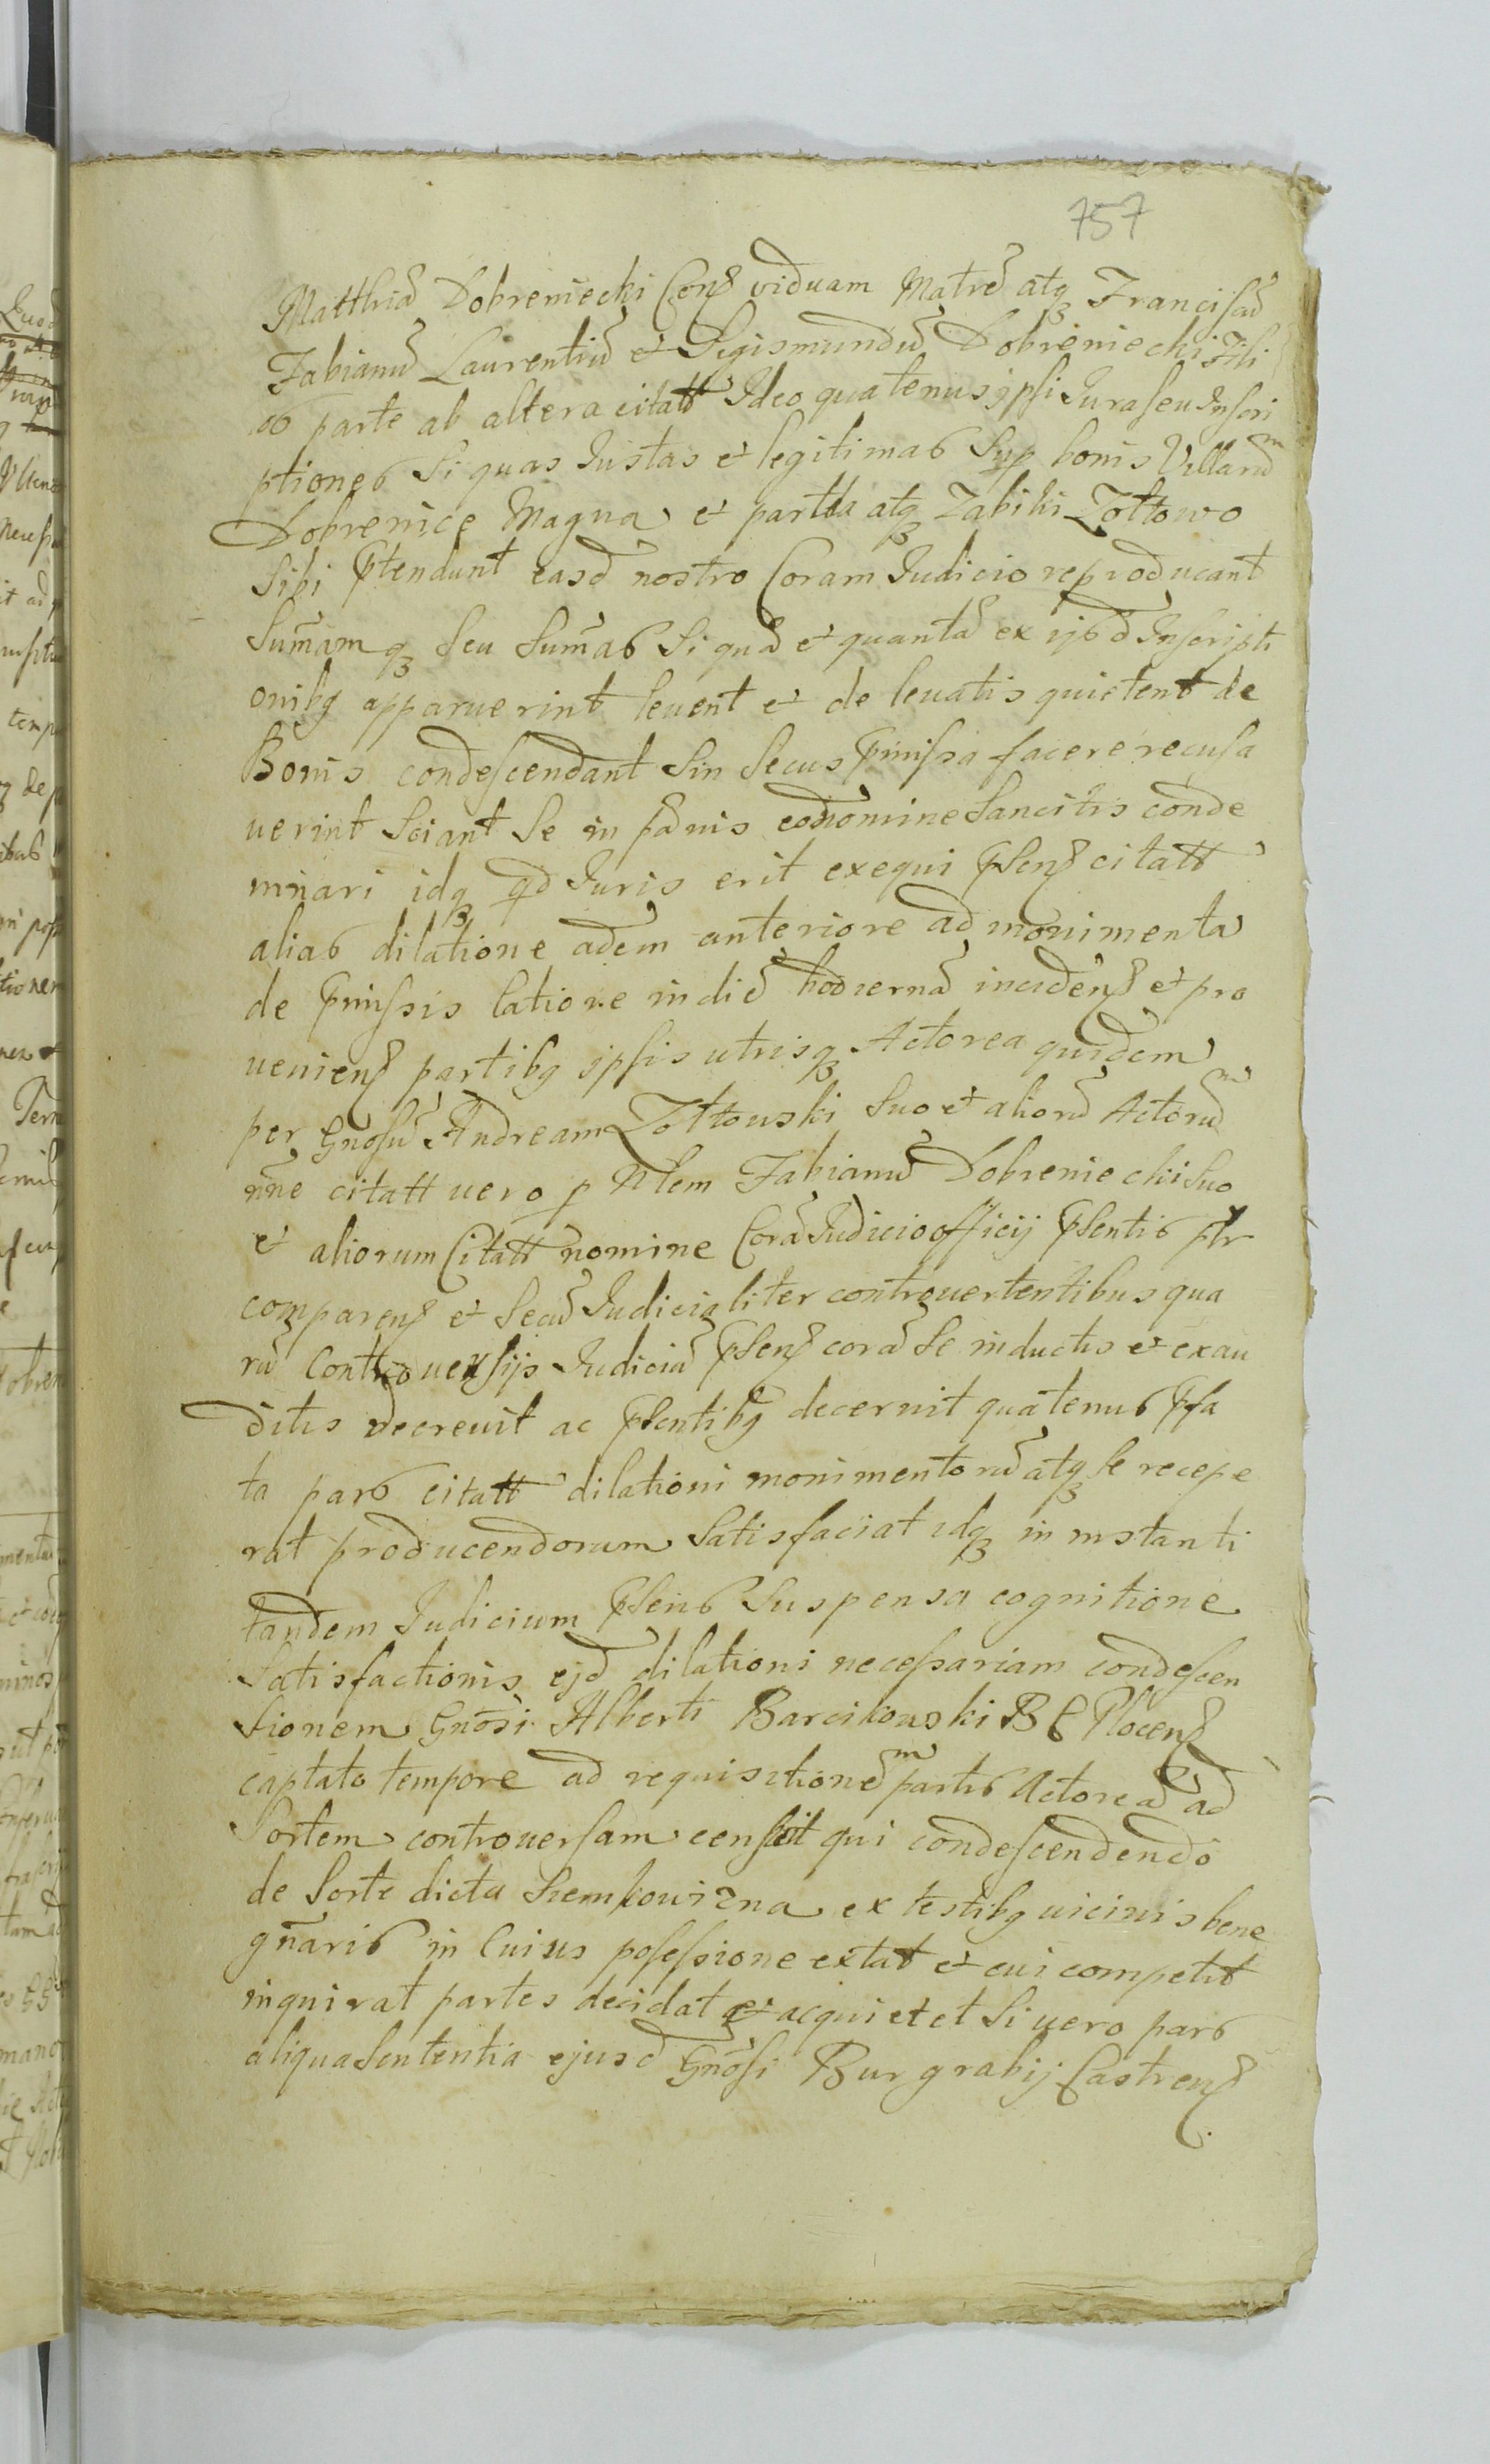 757
Matthiã Dobreniecki Conẜ viduam Matrẽ atqꝫ Franciscũ
Fabianũ Laurentiũ et Sigismundũ Dobreniecki Fili
os parte ab altera citatt Ideo quatenus ipsi Jura seu Inscri
ptiones si quas Justas et legitimas sup bonis Villarũ
Dobrenice Magna et parttla atqꝫ Żabiki Żołtowo
sibi p̃tendunt easd̃ nostro Coram Judicio reproducant
Sum̃amqꝫ seu Sum̃as si quã et quantã ex ijsd̃ Inscripti
onibꝫ apparuerint levent et de levatis quietent de
Bonis condescendant sin secus p̃missa facere recusa
uerint sciant se in pænis eo nomine sancitis conde
mnari idqꝫ qd Juris erit exequi p̃senẜ citatt
alias dilatione adem anteriore ad monimenta
de p̃missis latione in diẽ hodiernã incidenẜ et pro
venienẜ partibꝫ ipsis utrisqꝫ Actorea quidem
per Gnosũ Andream Żołtowski suo et aliorũ Actorũ
ñne citatt uero p Nlem Fabianũ Dobreniecki suo
et aliorum Citatt nomine Corã Judicio officij p̃sentis pltr
comparenẜ et secũ Judicialiter controuertentibus qua
rũ Controuersijs Judiciũ p̃senẜ corã se inductis et exau
ditis decreuit ac p̃sentibꝫ decernit quatenus p̃fa
ta pars citatt dilationi monimentorũ atqꝫ se recepe
rat producendorum satisfaciat idqꝫ in instanti
tandem Judicium p̃sens suspensa cognitione
satisfactionis ejd̃ dilationi necessariam condescen
sionem Gnõsi Alberti Barcikowski B C Plocenẜ
captato tempore ad requisitionẽ partis Actoreã ad
Sortem controuersam censuit qui condescendendo
de Sorte dicta Siemkowizna ex testibꝫ uicinis bene
gñaris in Cuius possessione extat et cui competit
inquirat partes decidat et acquietet si uero pars
aliqua sententia ejusd̃ Gnõsi Burgrabij Castrenẜ